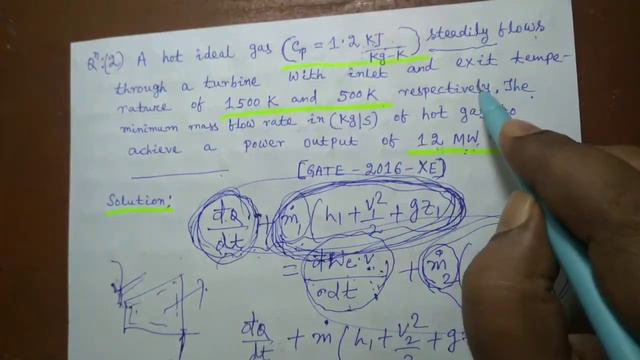 Qⁿ:(2) A hot ideal gas (Cp = 1.2 KJ/Kg-K) steadily flows
through a turbine with inlet and exit tempe-
rature of 1500 K and 500 K respectively. The
minimum mass flow rate in (Kg/s) of hot gas to
achieve a power output of 12 MW
[GATE-2016-XE]
Solution:
dQ/dt + ṁ₁(h₁ + V₁²/2 + gz₁)
= dWc.v/dt + ṁ₂(
dQ/dt + ṁ(h₁ + V₁²/2 + g